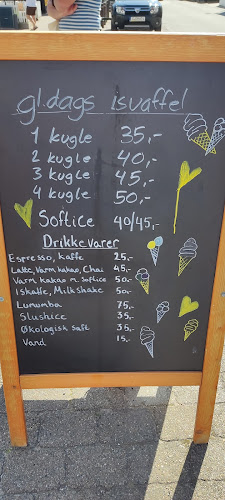 gl.dags isvaffel
1 kugle 35,-
2 kugle 40,-
3 kugle 45,-
4 kugle 50,-
Softice 40/45,-
Drikkevarer
Espresso, kaffe 25.-
Latte, Varm kakao, Chai 45.-
Varm kakao m. Softice 50.-
Iskaffe, Milkshake 50.-
Lumumba 75.-
Slushice 35.-
Økologisk saft 35.-
Vand 15.-